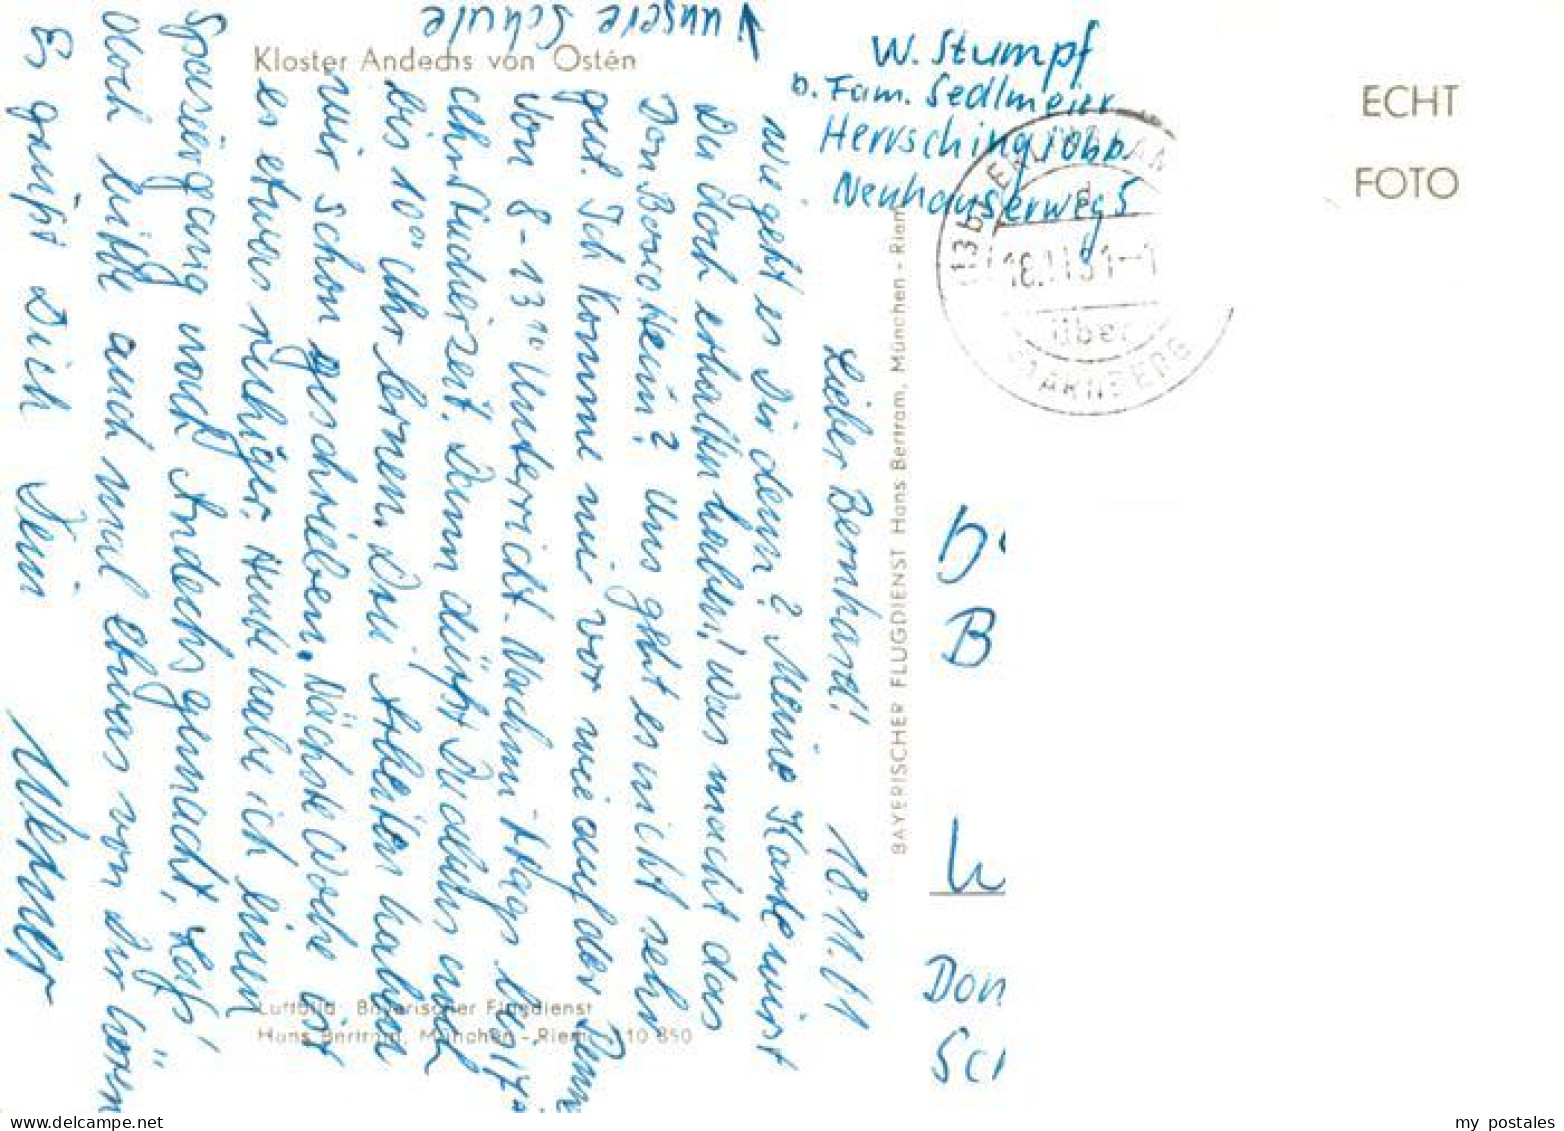 unsere Schule
Kloster Andechs von Osten
W. Stumpf
b. Fam. Sedlmeier
Herrsching /Obb.
Neuhauserweg 5
ECHT
FOTO
über
STARNBERG
Lieber Bernhard! 18.11.61
wie geht es Dir denn? Meine Karte wirst
Du doch erhalten haben! Was macht das
Don Bosco Heim? Uns geht es nicht sehr
gut. Ich komme mir vor wie auf der Penne
Von 8-13¹⁰ Unterricht. Nachmittags bis 17⁰⁰
Uhr Studierzeit. Dann dürfst Du abends noch
bis 10⁰⁰ Uhr lernen. Drei Arbeiten haben
wir schon geschrieben. Nächste Woche ist
es etwas ruhiger. Heute habe ich einen
Spaziergang nach Andechs gemacht. Lass'
doch bitte auch mal etwas von Dir hören
Es grüßt Dich Dein Werner
BAYERISCHER FLUGDIENST Hans Bertram, München - Riem
Luftbild: Bayerischer Flugdienst
Hans Bertram, München - Riem 110 850
B
Don
my postales